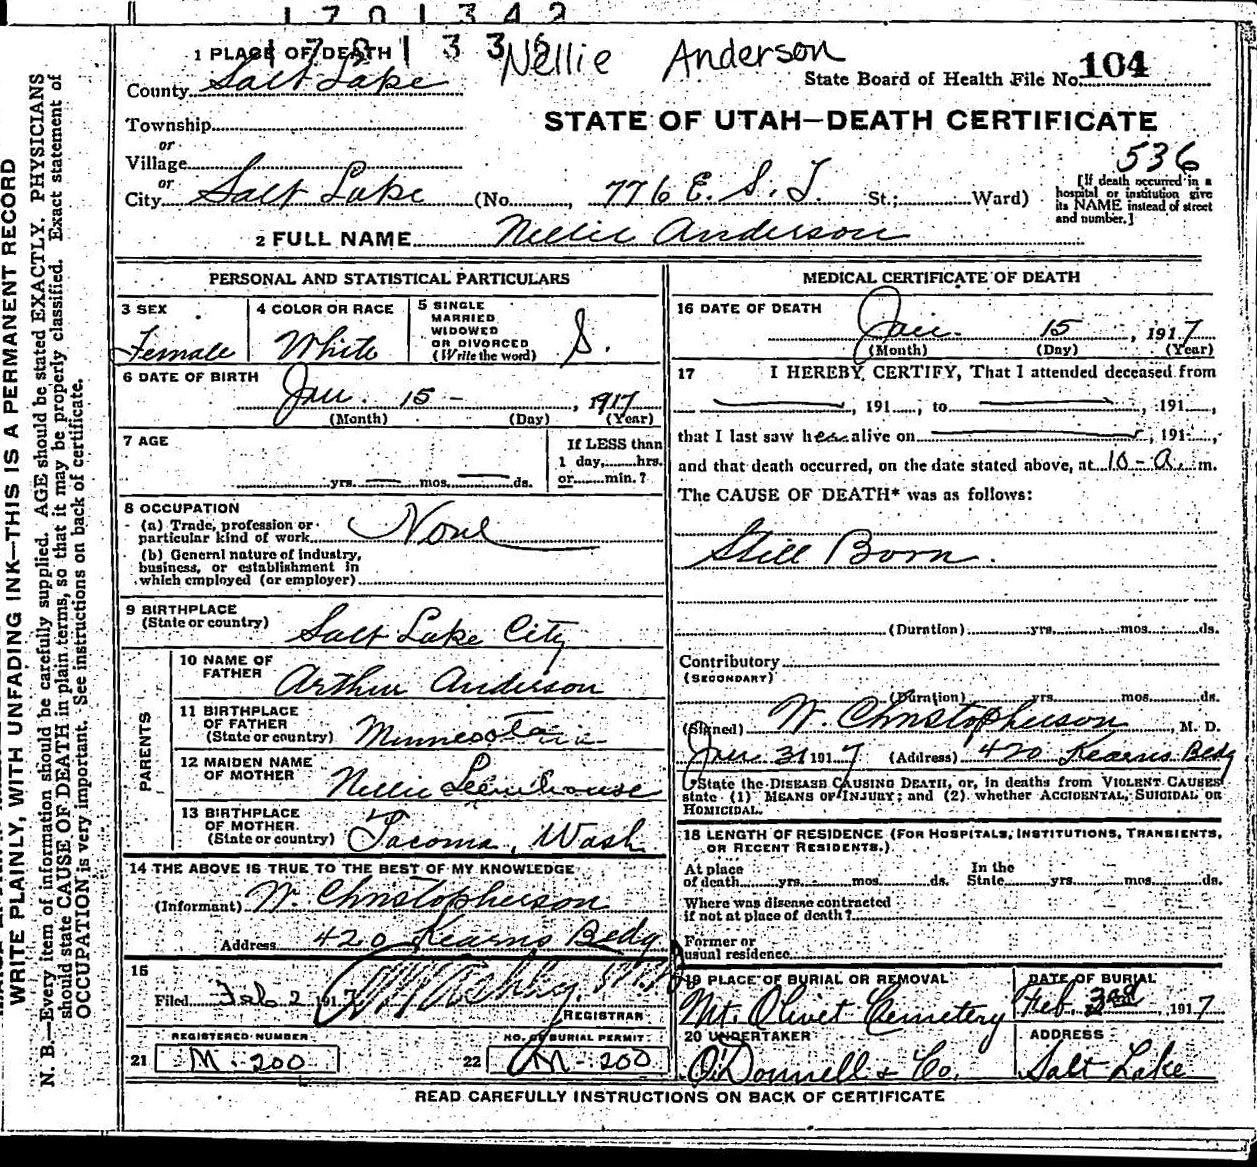 1701342
1781335
Nellie Anderson
1 PLACE OF DEATH
State Board of Health File No. 104
County Salt Lake
STATE OF UTAH—DEATH CERTIFICATE
Township
or
Village
536
or
City Salt Lake (No. , 776 E. S. T. St.; Ward)
[If death occurred in a
hospital or institution give
its NAME instead of street
and number.]
2 FULL NAME Nellie Anderson
PERSONAL AND STATISTICAL PARTICULARS
3 SEX
Female
4 COLOR OR RACE
White
5 SINGLE
MARRIED
WIDOWED
OR DIVORCED
(Write the word)
S.
6 DATE OF BIRTH
Jan. 15 - , 1917
(Month) (Day) (Year)
7 AGE
yrs. mos. ds.
If LESS than
1 day, hrs.
or min.?
8 OCCUPATION
(a) Trade, profession or
particular kind of work None
(b) General nature of industry,
business, or establishment in
which employed (or employer)
9 BIRTHPLACE
(State or country) Salt Lake City
PARENTS
10 NAME OF
FATHER Arthur Anderson
11 BIRTHPLACE
OF FATHER
(State or country)
12 MAIDEN NAME
OF MOTHER Nellie
13 BIRTHPLACE
OF MOTHER
(State or country) Tacoma, Wash
14 THE ABOVE IS TRUE TO THE BEST OF MY KNOWLEDGE
(Informant) W. Christopherson
Address 420 Kearns Bldg
15
Filed Feb 2 1917 Ashby, M.D.
REGISTRAR
REGISTERED NUMBER
21 M-200
NO. OF BURIAL PERMIT
22 M-200
MEDICAL CERTIFICATE OF DEATH
16 DATE OF DEATH
Jan. 15 , 1917
(Month) (Day) (Year)
17 I HEREBY CERTIFY, That I attended deceased from
, 191 , to , 191 ,
that I last saw her alive on , 191 ,
and that death occurred, on the date stated above, at 10 - a. m.
The CAUSE OF DEATH* was as follows:
Still Born.
(Duration) yrs. mos. ds.
Contributory
(SECONDARY)
(Duration) yrs. mos. ds.
(Signed) W. Christopherson, M. D.
Jan. 31 1917 (Address) 420 Kearns Bldg
*State the DISEASE CAUSING DEATH, or, in deaths from VIOLENT CAUSES
state (1) MEANS OF INJURY; and (2) whether ACCIDENTAL, SUICIDAL or
HOMICIDAL.
18 LENGTH OF RESIDENCE (FOR HOSPITALS, INSTITUTIONS, TRANSIENTS,
OR RECENT RESIDENTS.)
At place In the
of death yrs. mos. ds. State yrs. mos. ds.
Where was disease contracted
if not at place of death?
Former or
usual residence
19 PLACE OF BURIAL OR REMOVAL
Mt. Olivet Cemetery
DATE OF BURIAL
Feb. 3rd, 1917
20 UNDERTAKER
O'Donnell & Co.
ADDRESS
Salt Lake
READ CAREFULLY INSTRUCTIONS ON BACK OF CERTIFICATE
WRITE PLAINLY, WITH UNFADING INK—THIS IS A PERMANENT RECORD
N. B.—Every item of information should be carefully supplied. AGE should be stated EXACTLY. PHYSICIANS
should state CAUSE OF DEATH in plain terms, so that it may be properly classified. Exact statement of
OCCUPATION is very important. See instructions on back of certificate.